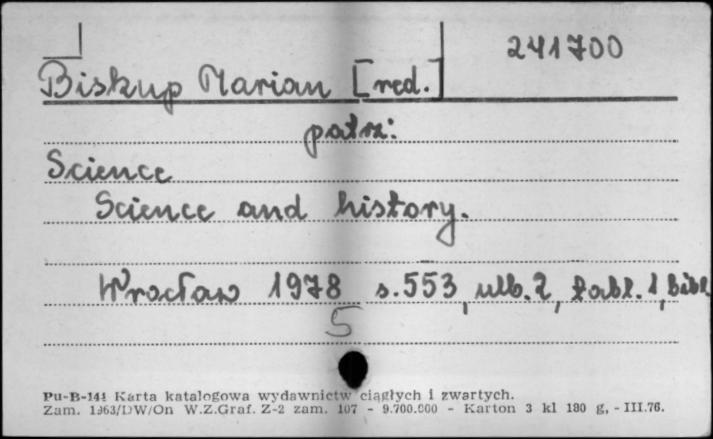 241700
Biskup Marian [red.]
patrz:
Science
Science and history.
Wrocław 1978 s.553, ulb.2, tabl.1, Bibl.
5
Pu-B-141 Karta katalogowa wydawnictw ciągłych i zwartych.
Zam. 1963/DW/On W.Z.Graf. Z-2 zam. 107 - 9.700.000 - Karton 3 kl 180 g, - III.76.